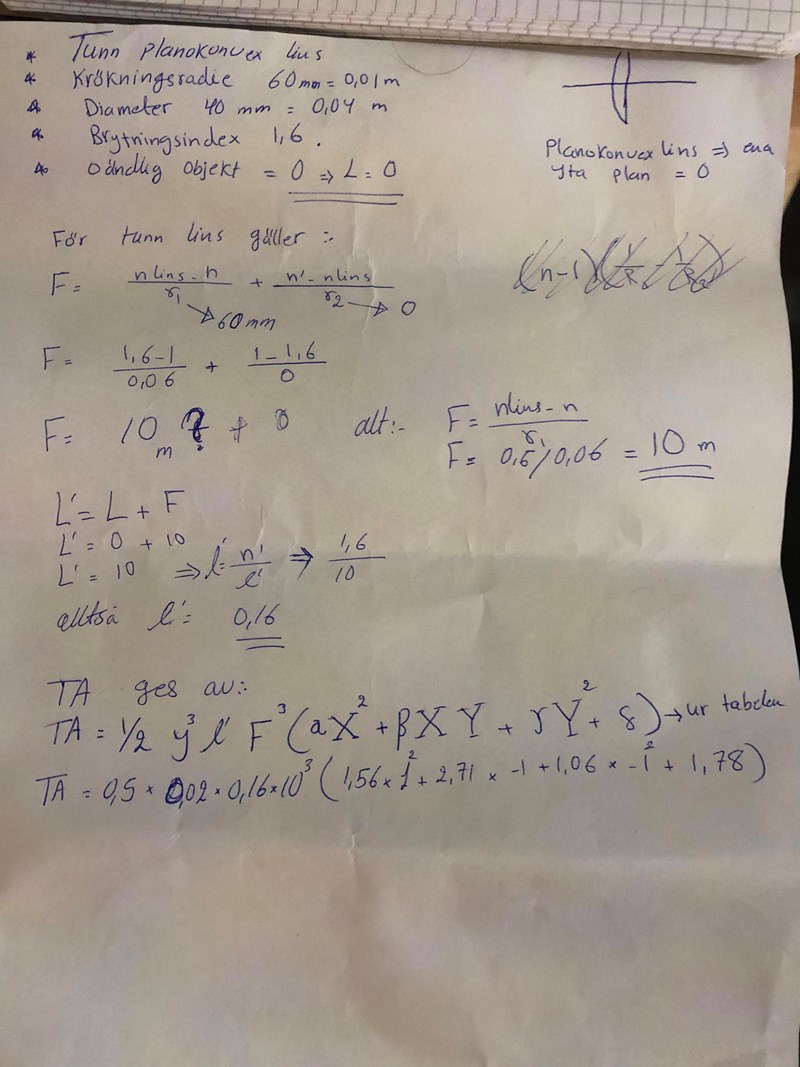 * Tunn planokonvex lins
* Krökningsradie 60mm = 0,01 m
* Diameter 40 mm = 0,04 m
* Brytningsindex 1,6.
* Oändlig objekt = 0 => L = 0
Planokonvex lins => ena
yta plan = 0
För tunn lins gäller :-
F = (nlins - n)/r1 + (n' - nlins)/r2
→ 60mm → 0
F = (1,6-1)/0,06 + (1-1,6)/0
F = 10m ? + 0 alt:- F = (nlins - n)/r1
F = 0,6/0,06 = 10 m
L' = L + F
L' = 0 + 10
L' = 10 => l' = n'/l' => 1,6/10
alltså l' = 0,16
TA ges av:-
TA = 1/2 y³ l' F³ (aX² + βXY + γY² + δ) → ur tabelen
TA = 0,5 × 0,02 × 0,16 × 10³ (1,56 × 1² + 2,71 × -1 + 1,06 × -1² + 1,78)